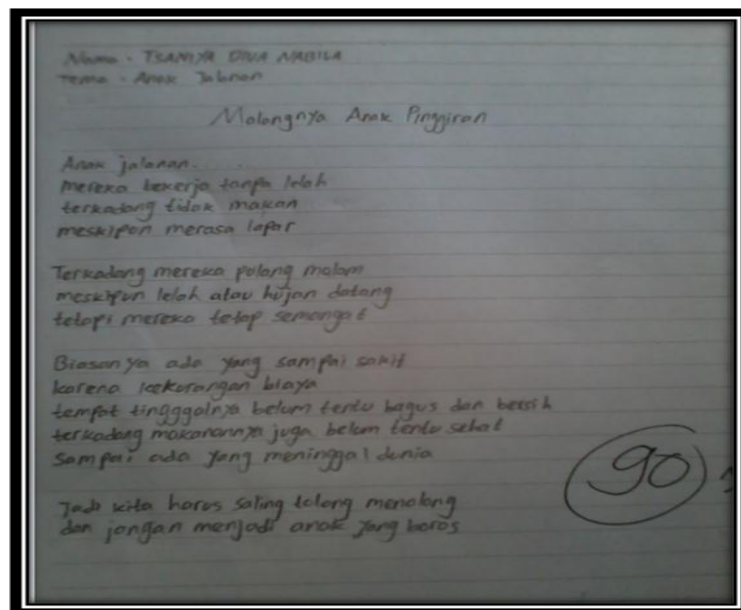 Nama - TSANIYA DIVA NABILA
Tema - Anak Jalanan
Malangnya Anak Pinggiran
Anak jalanan...
mereka bekerja tanpa lelah
terkadang tidak makan
meskipun merasa lapar
Terkadang mereka pulang malam
meskipun lelah atau hujan datang
tetapi mereka tetap semangat
Biasanya ada yang sampai sakit
karena kekurangan biaya
tempat tingggalnya belum tentu bagus dan bersih
terkadang makanannya juga belum tentu sehat
sampai ada yang meninggal dunia
90
Jadi kita harus saling tolong menolong
dan jangan menjadi anak yang boros